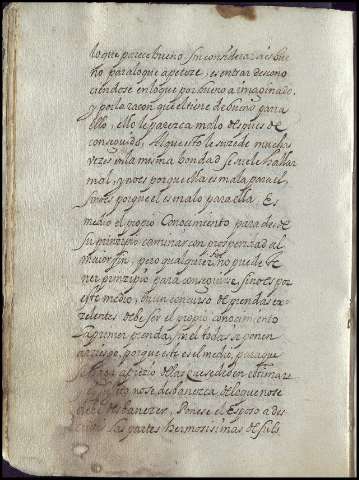 lo que parece bueno, sin considerar si es bue
no para lo que apeteze, es entrar descono
ciendose en lo que por bueno a imaginado,
y por la raçon que el tiene de bueno para
ello, ello le parezca malo despues de
conseguido, Al que esto le suzede muchas
vezes en la mesma bondad se suele hallar
mal, y no es porque ella es mala para el,
sino es porque el es malo para ella, Es
medio el propio Conocimiento para desde
su prinzipio caminar con prosperidad al
maior fin, pero qualquiera no puede te
ner prinzipio para conseguirse, sino es por
este medio, en un concurso de prendas ex
zelentes debe ser el propio conocimiento
la primer prenda, sin el todas se ponen
a riesgo, porque este es el medio, para que
aprezio de las que sedes en estimar
no se desbanezca, de lo que no se
debe desbanezer, Ponese el Esposo a des
las partes hermosisimas de su Es